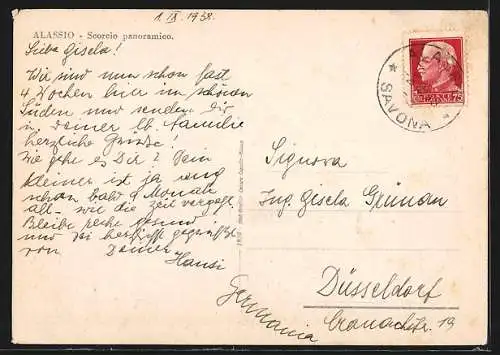 1. IX. 1938.
ALASSIO - Scorcio panoramico.
Liebe Gisela!
Wir sind nun schon fast
4 Wochen hier im schönen
Süden und senden Dir
u. Deiner lb. Familie
herzliche Grüsse!
Wie geht es Dir? Dein
Kleiner ist ja auch
schon bald 9 Monate
alt - wie die Zeit vergeht.
Bleibe recht gesund
und sei herzlichst gegrüsst
von Deiner
Hansi
SAVONA
75
Signora
Ing. Gisela Grünau
Düsseldorf
Cranachstr. 19
Germania